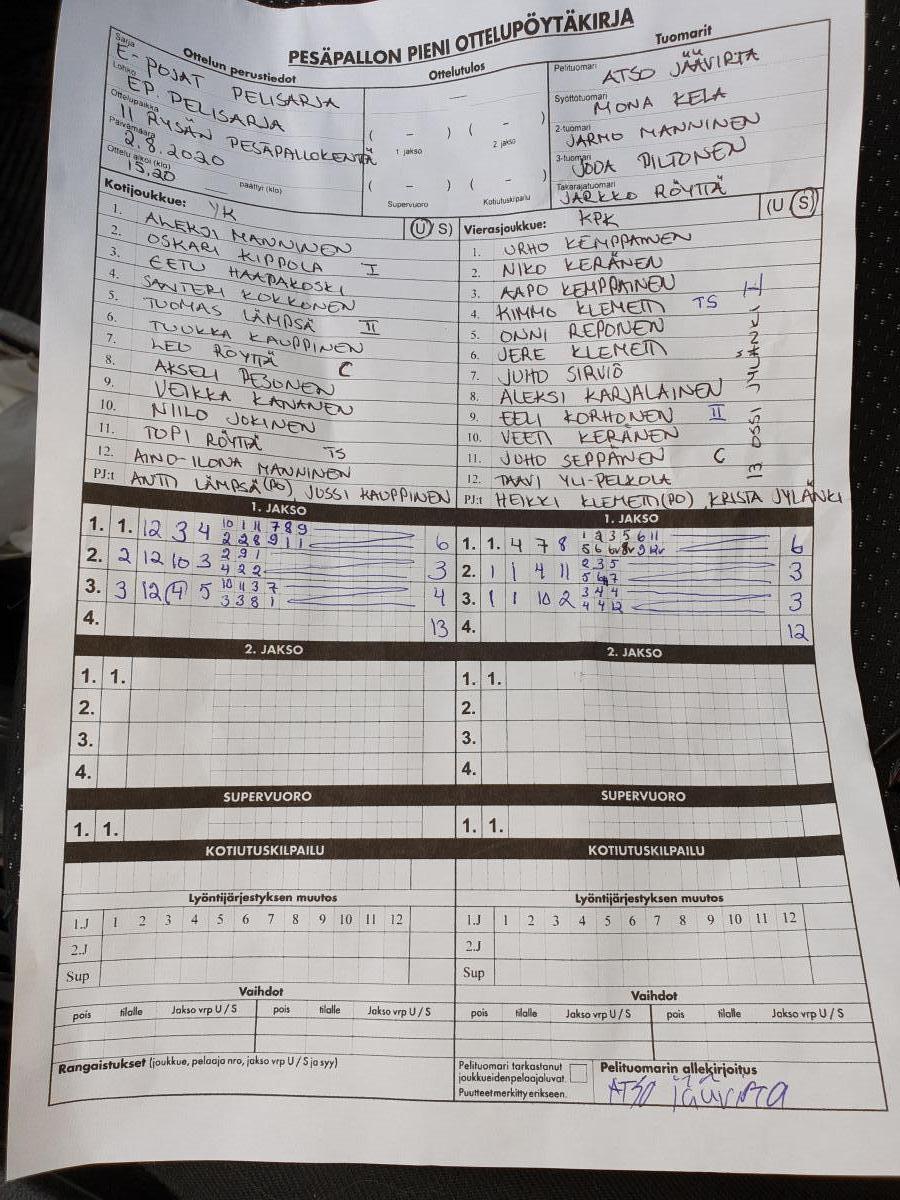 PESÄPALLON PIENI OTTELUPÖYTÄKIRJA
Ottelun perustiedot
Sarja
E-POJAT PELISARJA
Lohko
EP. PELISARJA
Ottelupaikka
II RYSÄN PESÄPALLOKENTÄ
Päivämäärä
2.8.2020
Ottelu alkoi (klo)
15.20 päättyi (klo)
Ottelutulos
—
( – ) ( – )
1 jakso 2 jakso
( – ) ( – )
Supervuoro Kotiutuskilpailu
Tuomarit
Pelituomari
ATSO JÄÄVIRTA
Syöttötuomari
MONA KELA
2-tuomari
JARMO MANNINEN
3-tuomari
PILTONEN
Takarajatuomari
JARKKO RÖYTTÄ
Kotijoukkue: YK (U S)
1. ALEKSI MANNINEN
2. OSKARI KIPPOLA I
3. EETU HAAPAKOSKI
4. SANTERI KOKKONEN
5. TUOMAS LÄMPSÄ II
6. TUUKKA KAUPPINEN
7. LEO RÖYTTÄ C
8. AKSELI PESONEN
9. VEIKKA KANANEN
10. NIILO JOKINEN
11. TOPI RÖYTTÄ TS
12. AINO-ILONA MANNINEN
PJ:t ANTTI LÄMPSÄ (PO), JUSSI KAUPPINEN
Vierasjoukkue: KPK (U S)
1. URHO KEMPPAINEN
2. NIKO KERÄNEN
3. AAPO KEMPPAINEN
4. KIMMO KLEMETTI TS
5. ONNI REPONEN
6. JERE KLEMETTI
7. JUHO SIRVIÖ
8. ALEKSI KARJALAINEN
9. EELI KORHONEN II
10. VEETI KERÄNEN
11. JUHO SEPPÄNEN C
12. TAAVI YLI-PELKOLA
13 OSSI JYLÄNKI
PJ:t HEIKKI KLEMETTI (PO), KRISTA JYLÄNKI
1. JAKSO
1. 1. 12 3 4 10 1 11 7 8 9
2 2 8 9 1 1 6
2. 2 12 10 3 2 9 1
4 2 2 3
3. 3 12 4 5 10 11 3 7
3 3 8 1 4
4. 13
1. JAKSO
1. 1. 4 7 8 1 2 3 5 6 11
5 6 6v 8v 9 12v 6
2. 1 1 4 11 2 3 5
5 6 7 3
3. 1 1 10 2 3 4 4
4 4 12 3
4. 12
2. JAKSO
1. 1.
2.
3.
4.
2. JAKSO
1. 1.
2.
3.
4.
SUPERVUORO
1. 1.
SUPERVUORO
1. 1.
KOTIUTUSKILPAILU
KOTIUTUSKILPAILU
Lyöntijärjestyksen muutos
1.J 1 2 3 4 5 6 7 8 9 10 11 12
2.J
Sup
Lyöntijärjestyksen muutos
1.J 1 2 3 4 5 6 7 8 9 10 11 12
2.J
Sup
Vaihdot
pois tilalle Jakso vrp U / S pois tilalle Jakso vrp U / S
Vaihdot
pois tilalle Jakso vrp U / S pois tilalle Jakso vrp U / S
Rangaistukset (joukkue, pelaaja nro, jakso vrp U / S ja syy)
Pelituomari tarkastanut
joukkueidenpelaajaluvat.
Puutteet merkitty erikseen.
Pelituomarin allekirjoitus
ATSO jäävirta